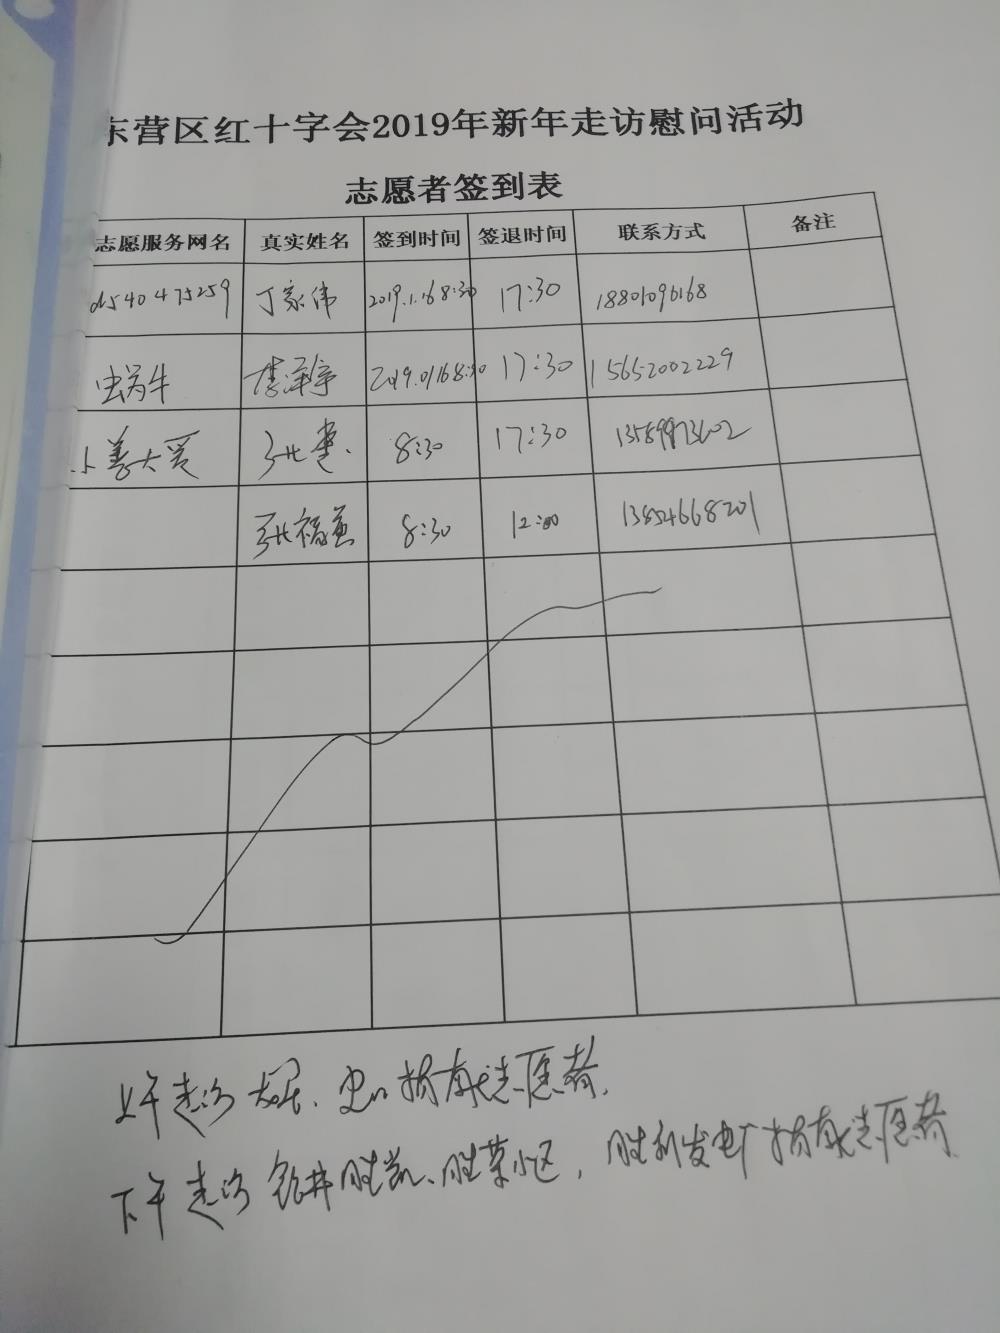 东营区红十字会2019年新年走访慰问活动
志愿者签到表
志愿服务网名 真实姓名 签到时间 签退时间 联系方式 备注
d540475259 丁家伟 2019.1.16 8:30 17:30 18801090168
蜗牛 李泽宇 2019.01.16 8:30 17:30 15652002229
小善大爱 张 8:30 17:30 13589973602
张福 8:30 12:00 13854668201
上午走访 志愿者.
下午走访 钻井胜凯、胜莱小区，胜利发电厂 志愿者